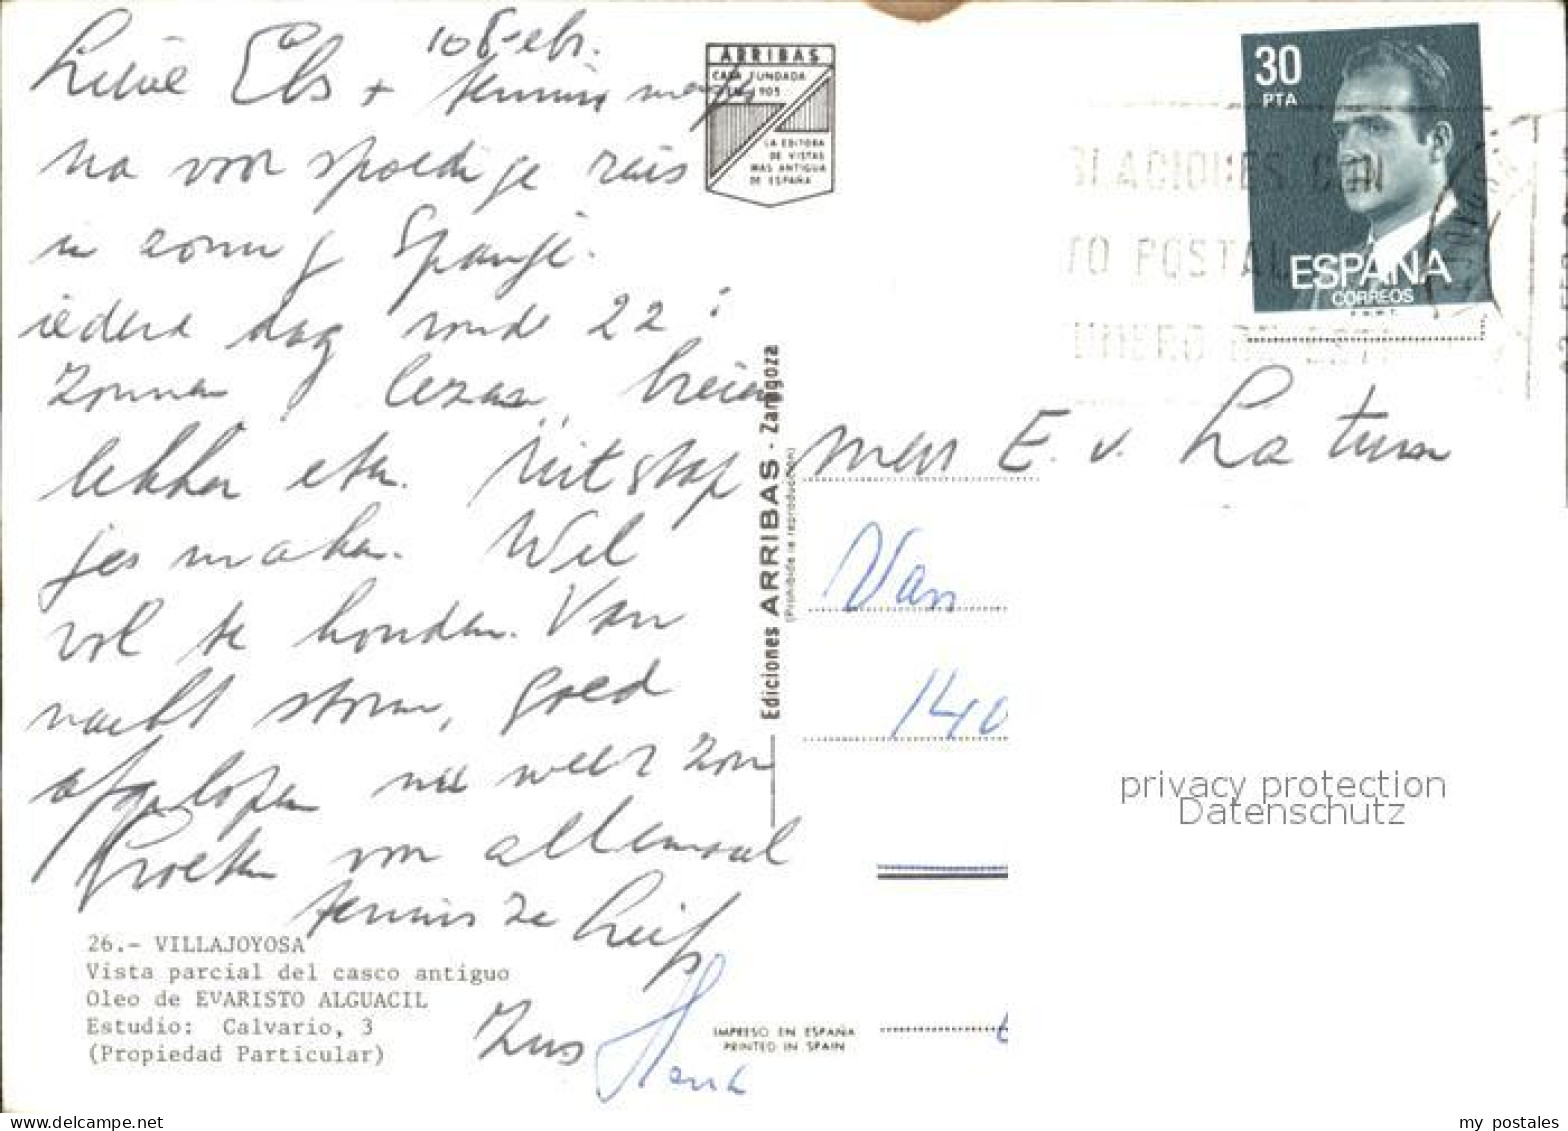 10 Febr.
Lieve Els +
na voor spoedige reis
in zonnig Spanje.
iedere dag rond 22°
Zonnen lezen, breien
lekker eten. Uitstap
jes maken. Wel
vol te houden. Van
nacht storm, goed
afgelopen nu weer zon
Groeten van allemaal
liefs
Zus Henk
26.- VILLAJOYOSA
Vista parcial del casco antiguo
Oleo de EVARISTO ALGUACIL
Estudio: Calvario, 3
(Propiedad Particular)
ARRIBAS
CASA FUNDADA
EN 1905
LA EDITORA
DE VISTAS
MAS ANTIGUA
DE ESPAÑA
Ediciones ARRIBAS - Zaragoza
(Prohibida la reproducción)
IMPRESO EN ESPAÑA
PRINTED IN SPAIN
30
PTA
ESPAÑA
CORREOS
F.N.M.T.
BLACIONES CON
TO POSTAL
UMERO DE ESTE
E. v. Latum
Van
140
privacy protection
Datenschutz
www.delcampe.net
my_postales